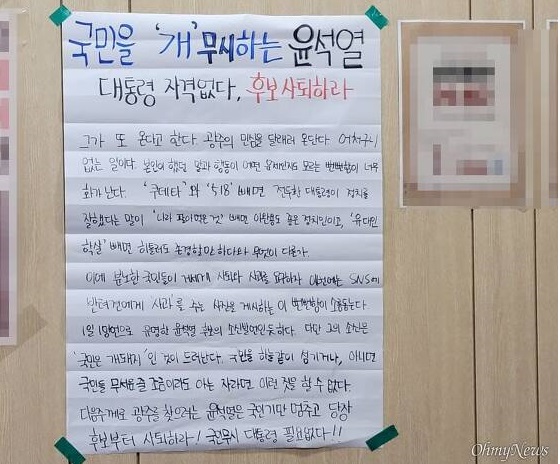 국민을 '개' 무시하는 윤석열
대통령 자격없다, 후보사퇴하라
그가 또 온다고 한다. 광주의 민심을 달래러 온단다. 어처구니
없는 일이다. 본인이 했던 말과 행동이 어떤 문제인지도 모르는 뻔뻔함이 너무
화가난다. '쿠데타'와 '518' 빼면 전두환 대통령이 정치를
잘했다는 말이 '나라 팔아먹은 것' 빼면 이완용도 좋은 정치인이고, '유대인
학살' 빼면 히틀러도 존경할만 하다와 무엇이 다른가.
이에 분노한 국민들이 거세게 사퇴와 사과를 요구하자 이번에는 SNS에
반려견에게 사과를 주는 사진을 게시하는 이 뻔뻔함이 소름돋는다.
1일 1망언으로 유명한 윤석열 후보의 소신발언인듯하다. 다만 그의 소신은
'국민은 개돼지'인 것이 드러난다. 국민을 하늘같이 섬기거나, 아니면
국민들 무서운 줄 조금이라도 아는 자라면 이런 짓을 할 수 없다.
다음주께로 광주를 찾으려는 윤석열은 국민기만 멈추고 당장
후보부터 사퇴하라! 국민무시 대통령 필요없다!!
OhmyNews